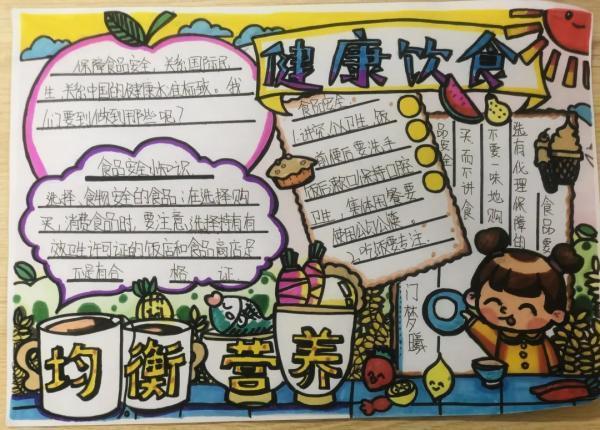 健康饮食
保障食品安全,关系国际民
生,关系中国的健康水准标致。我
们要到做到那些呢?
食品安全小知识
选择食物安全的食品:在选择购
买、消费食品时,要注意选择持有有
效卫生许可证的饭店和食品商店是
不是有合 格 证
食品安全
1.讲究个人卫生,饭
前便后要洗手
饭后漱口保持口腔
卫生,集体用餐要
使用公勺公筷。
2.吃饭要专注.
食品要
选有化理保障的
不要一味地购
买而不讲食
品安全
门梦曦
均衡营养